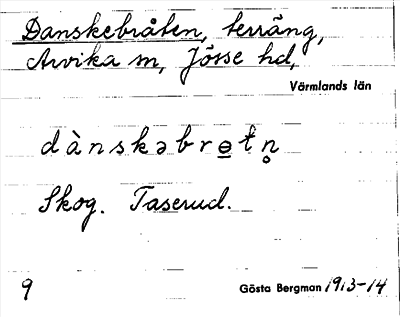 Danskebråten, terräng,
Arvika m, Jösse hd,
Värmlands län
dànskəbrɵ̲tn̥
Skog. Taserud.
9 Gösta Bergman 1913-14